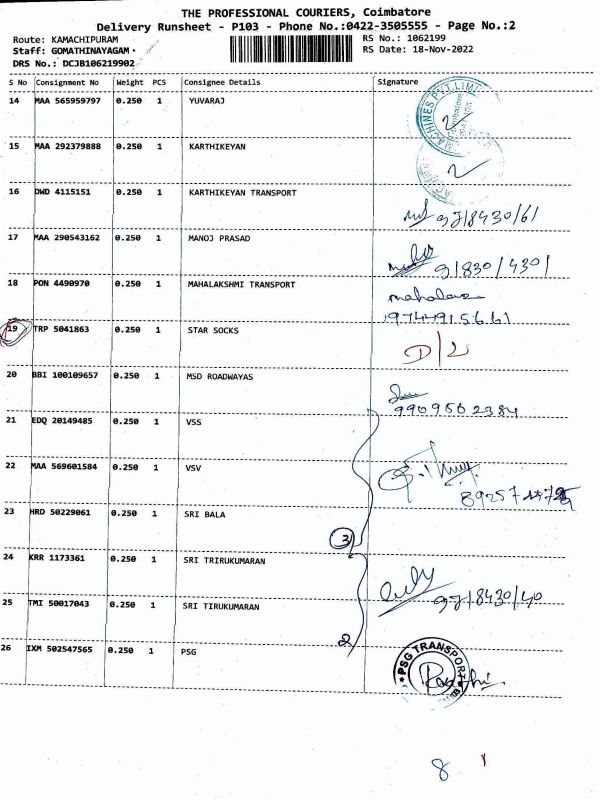 THE PROFESSIONAL COURIERS, Coimbatore
Delivery Runsheet - P103 - Phone No.:0422-3505555 - Page No.:2
Route: KAMACHIPURAM
RS No.: 1062199
Staff: GOMATHINAYAGAM
RS Date: 18-Nov-2022
DRS No.: DCJB106219902
S No Consignment No Weight PCS Consignee Details Signature
14 MAA 565959797 0.250 1 YUVARAJ
15 MAA 292379888 0.250 1 KARTHIKEYAN
16 DWD 4115151 0.250 1 KARTHIKEYAN TRANSPORT
17 MAA 290543162 0.250 1 MANOJ PRASAD
18 PON 4490970 0.250 1 MAHALAKSHMI TRANSPORT
19 TRP 5041863 0.250 1 STAR SOCKS
D/L
20 BBI 100109657 0.250 1 MSD ROADWAYAS
9909502384
21 EDQ 20149485 0.250 1 VSS
22 MAA 569601584 0.250 1 VSV
23 HRD 50229061 0.250 1 SRI BALA
3
24 KRR 1173361 0.250 1 SRI TRIRUKUMARAN
25 TMI 50017043 0.250 1 SRI TIRUKUMARAN
2
26 IXM 502547565 0.250 1 PSG
PSG TRANSPORT
8 1